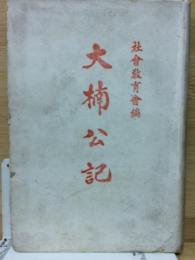 社會教育會編
大楠公記